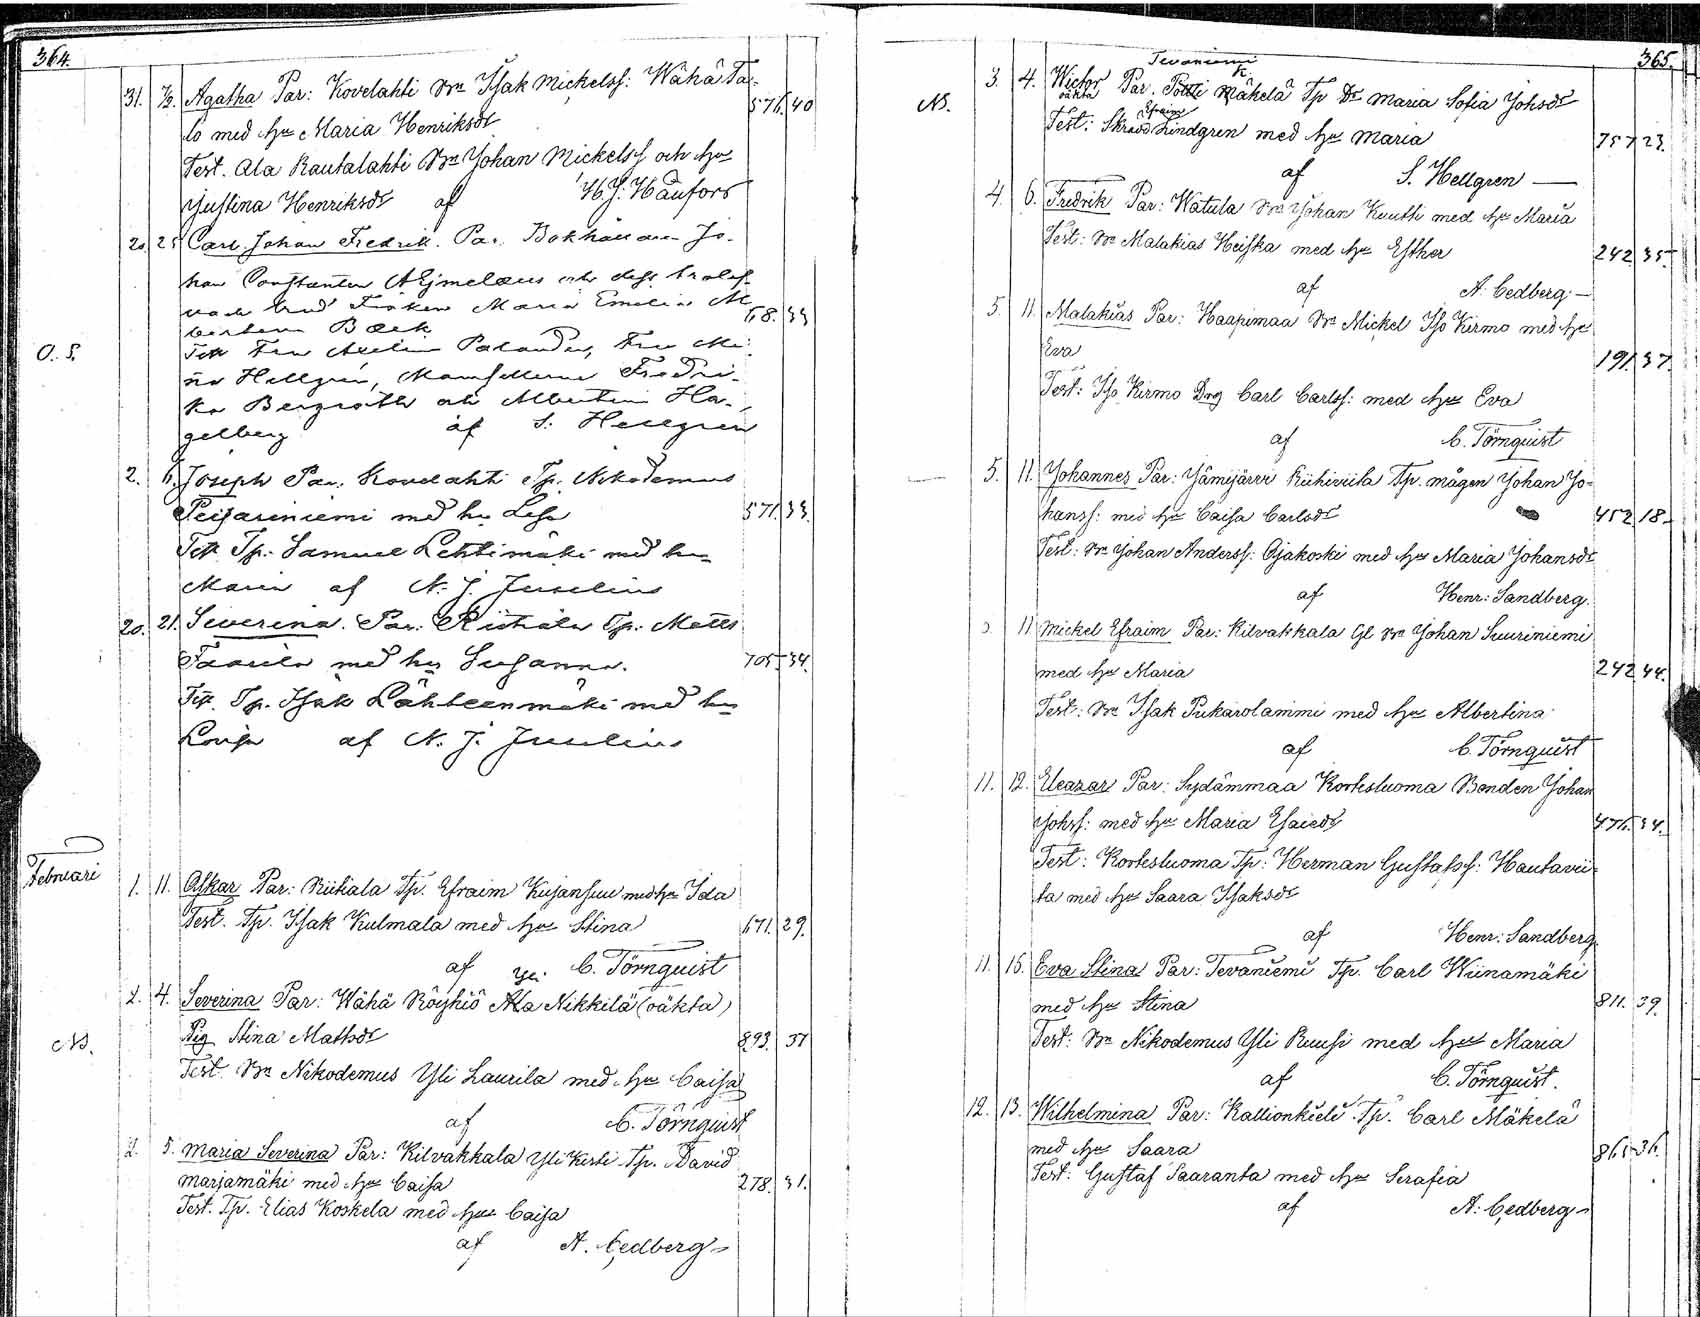 364.
31. 1/2. Agatha Par: Kovelahti Bn Isak Mickelss: Wähä Ta-
lo med hu Maria Henriksdr 576. 40
Test. Ala Rautalahti Bn Johan Mickelss och hu
Justina Henriksdr af H. J. Hänfors
20. 25 Carl Johan Fredrik. Par. Bokhållaren Jo-
han Constantin Aejmelæus och dess trolof-
vade brud Fröken Maria Emelie
Bæck 68. 33
O. S. Test Fru Axelina Palander, Fru Mi-
na Hellgrén, Mamsellerne Fredri-
ka Bergroth och Albertina Ha-
gelberg af S. Hellgren
2. 6. Joseph Par. Kovelahti Tp. Nikodemus
Peijariniemi med hu Lisa 571. 33.
Test Tp. Samuel Lehtimäki med hu
Maria af N. J. Juselius
20. 21. Severina. Par. Riitiala Tp. Matts
Faarila med hu Susanna. 705 34.
Test. Tp. Isak Lähteenmäki med hu
Lovisa af N. J. Juselius
Februari
1. 11. Oskar Par: Riitiala Tp. Efraim Kujansuu med hu Ida
Test. Tp. Isak Kulmala med hu Stina 671. 29.
af C. Törnquist
Yli
2. 4. Severina Par: Wähä Röyhiö Ala Nikkilä (oäkta)
NB. Pig Stina Mattsdr 893. 37
Test Bn Nikodemus Yli Laurila med hu Caisa
af C. Törnquist
2. 5. Maria Severina Par: Kilvakkala Yli Kerti Tp. David
Marjamäki med hu Caisa 278. 31.
Test. Tp. Elias Koskela med hu Caisa
af A. Cedberg
365.
Tevaniemi
NB. 3. 4. Wictor Par. Potti Mäkelä Tp Dr Maria Sofia Johsdr
oäkta Efraim
Test: Skradd Lindgren med hu Maria 757 23.
af S. Hellgren
4. 6. Fredrik Par: Watula Bn Johan Kuutti med hu Maria
Test: Bn Malakias Heiska med hu Esther 242. 35.
af A. Cedberg
5. 11. Malakias Par: Haapimaa Bn Mickel Iso Kirmo med hu
Eva 191. 37.
Test: Iso Kirmo Drg Carl Carlss: med hu Eva
af C. Törnquist
5. 11. Johannes Par: Jämijärvi Riihiviita Tp. mågen Johan Jo-
hanss: med hu Caisa Carlsdr 452 18
Test: Bn Johan Anderss: Ojakoski med hu Maria Johansdr
af Henr: Sandberg.
11 Mickel Efraim Par: Kilvakkala Gl Bn Johan Suuriniemi
med hu Maria 242 44.
Test: Bn Isak Pukarolammi med hu Albertina
af C. Törnquist
11. 12. Eleazar Par: Sydämmaa Kortesluoma Bonden Johan
Johss: med hu Maria Esaiedr 476. 34.
Test: Kortesluoma Tp: Herman Gustafss: Hautavii-
ta med hu Saara Isaksdr
af Henr: Sandberg.
11. 15. Eva Stina Par: Tevaniemi Tp. Carl Wiinamäki
med hu Stina 811. 39.
Test: Bn Nikodemus Yli Ruusi med hu Maria
af C. Törnquist.
12. 13. Wilhelmina Par: Kallionkieli Tp. Carl Mäkelä
med hu Saara 865 36.
Test: Gustaf Saaranta med hu Serafia
af A. Cedberg